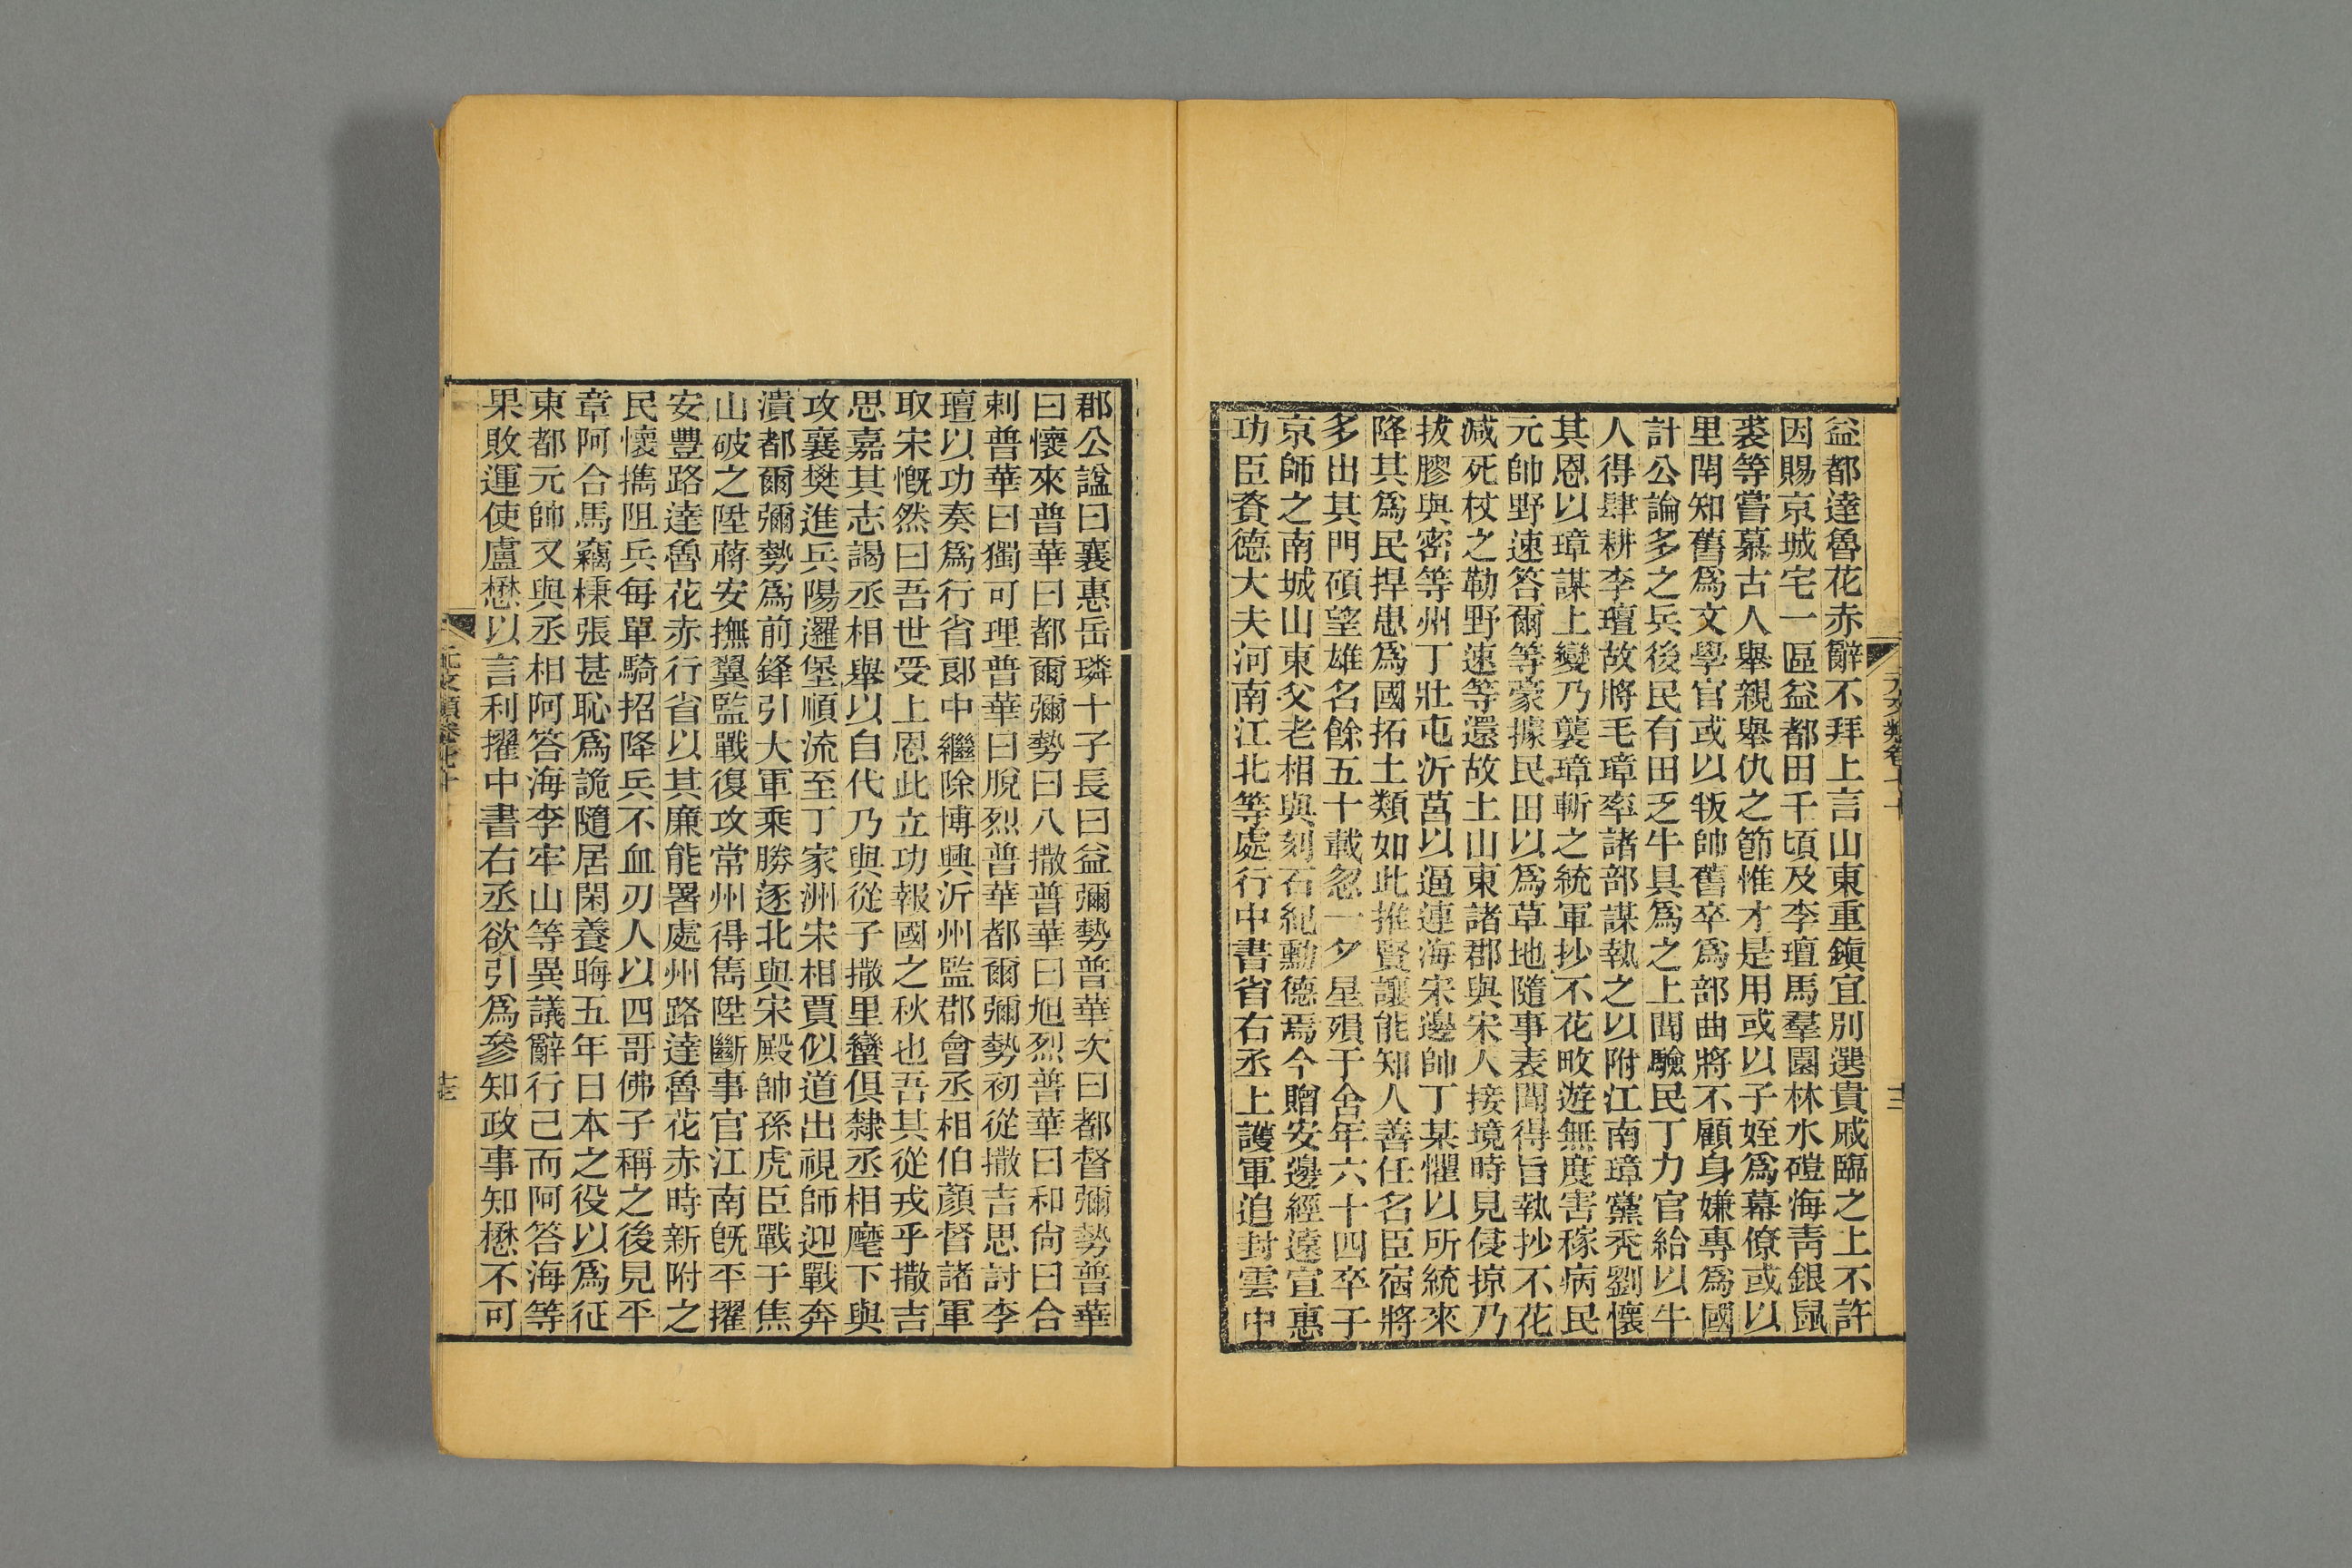 益都達魯花赤辭不拜上言山東重鎭宜別選貴戚臨之上不許
因賜京城宅一區益都田千頃及李璮馬羣園林水磑海靑銀鼠
裘等嘗慕古人舉親舉仇之節惟才是用或以子姪爲幕僚或以
里閈知舊爲文學官或以叛帥舊卒爲部曲將不顧身嫌專爲國
計公論多之兵後民有田乏牛具爲之上聞驗民丁力官給以牛
人得肆耕李璮故將毛璋率諸部謀執之以附江南璋黨禿劉懷
其恩以璋謀上變乃襲璋斬之統軍抄不花畋遊無度害稼病民
元帥野速答爾等豪據民田以爲草地隨事表聞得旨執抄不花
減死杖之勒野速等還故土山東諸郡與宋人接境時見侵掠乃
拔膠與密等州丁壯屯沂莒以逼連海宋邊帥丁某懼以所統來
降其爲民捍患爲國拓土類如此推賢讓能知人善任名臣宿將
多出其門碩望雄名餘五十載忽一夕星殞于舍年六十四卒于
京師之南城山東父老相與刻石紀勳德焉今贈安邊經遠宣惠
功臣賚德大夫河南江北等處行中書省右丞上護軍追封雲中
郡公諡曰襄惠岳璘十子長曰益彌勢普華次曰都督彌勢普華
曰懷來普華曰都爾彌勢曰八撒普華曰旭烈普華曰和尙曰合
剌普華曰獨可理普華曰脫烈普華都爾彌勢初從撒吉思討李
璮以功奏爲行省郎中繼除博興沂州監郡會丞相伯顏督諸軍
取宋慨然曰吾世受上恩此立功報國之秋也吾其從戎乎撒吉
思嘉其志謁丞相舉以自代乃與從子撒里蠻俱隸丞相麾下與
攻襄樊進兵陽邏堡順流至丁家洲宋相賈似道出視師迎戰奔
潰都爾彌勢爲前鋒引大軍乘勝逐北與宋殿帥孫虎臣戰于焦
山破之陞蔣安撫翼監戰復攻常州得雋陞斷事官江南旣平擢
安豐路達魯花赤行省以其廉能署處州路達魯花赤時新附之
民懷攜阻兵每單騎招降兵不血刃人以四哥佛子稱之後見平
章阿合馬竊秉張甚恥爲詭隨居閑養晦五年日本之役以爲征
東都元帥又與丞相阿答海李牢山等異議辭行己而阿答海等
果敗運使盧懋以言利擢中書右丞欲引爲參知政事知懋不可